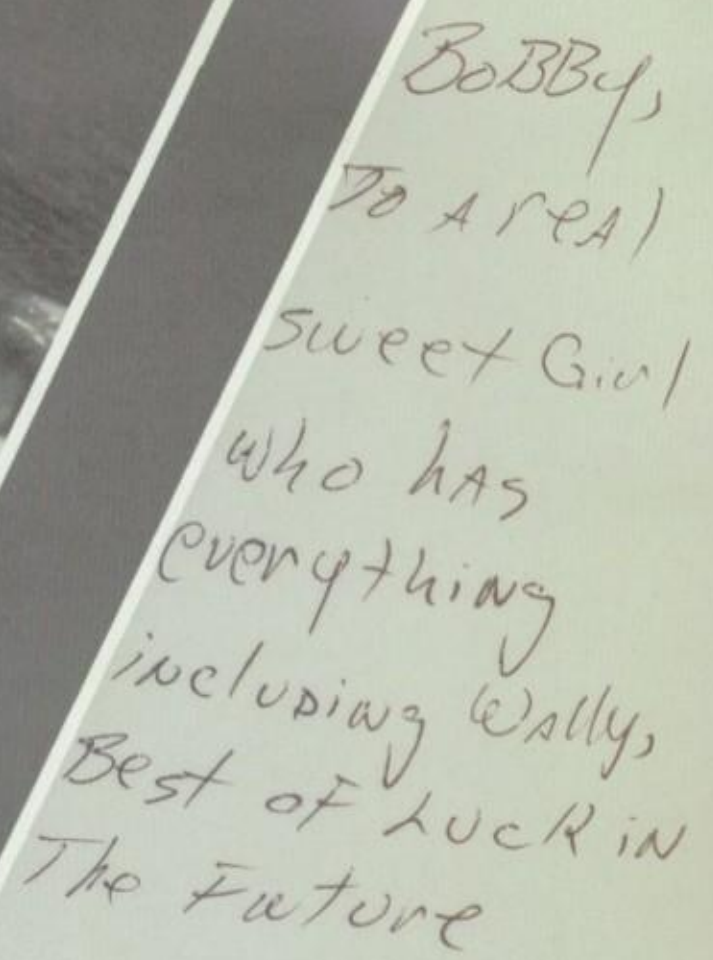 BoBBy,
To A reAl
sweet Girl
who hAs
everything
incluDing Wally,
Best oF Luck iN
The Future